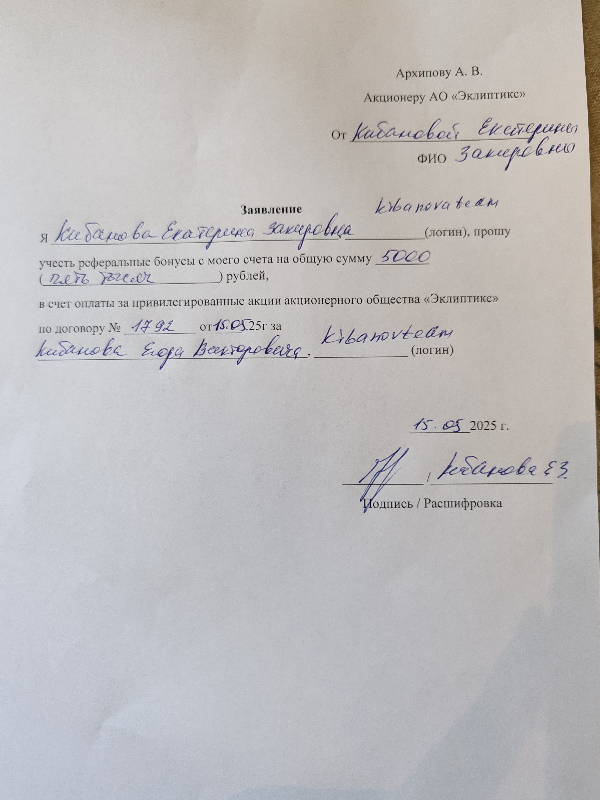 Архипову А. В.
Акционеру АО «Эклиптикс»
От Кибановой Екатерины
ФИО Закировны
Заявление kibanovateam
Я Кибанова Екатерина Закировна (логин), прошу
учесть реферальные бонусы с моего счета на общую сумму 5000
(пять тысяч) рублей,
в счет оплаты за привилегированные акции акционерного общества «Эклиптикс»
по договору № 1792 от 15.05.25г за
Кибанова Егора Викторовича, kibanovteam (логин)
15.05 2025 г.
/ Кибанова Е.З.
Подпись / Расшифровка